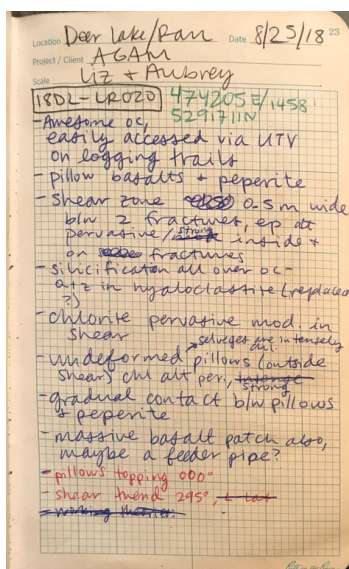 Location Deer Lake/Ran Date 8/25/18 23
Project / Client AGAM
Scale Liz + Aubrey
18DL-LR020 474205E/1458
5291711N
-Awesome oc,
easily accessed via UTV
on logging trails
- pillow basalts + peperite
- Shear zone 0.5m wide
b/w 2 fractures, ep alt
pervasive/strong inside +
on fractures
- silicification all over oc-
qtz in hyaloclastite (replaced
?)
- chlorite pervasive mod. in
shear
selveges are intensely
- undeformed pillows (outside
shear) chl alt per, intense
strong
- gradual contact b/w pillows
+ peperite
- massive basalt patch also,
maybe a feeder pipe?
- pillows topping 000°
- shear trend 295°,
- working theories: